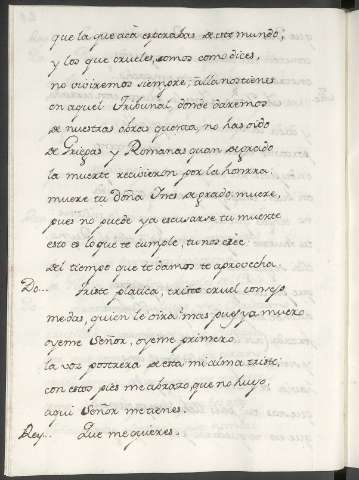 que la que acà esperabas de este mundo;
y los que crueles somos como dices,
no viviremos siempre; alla nos tienes
en aquel Tribunal, donde daremos
de nuestras obras quenta, no has oido
de Griegas y Romanas quan de grado
la muerte recivieron por la honrra:
muere tu doña Ines de grado, muere,
pues no puede ya escusarse tu muerte
esto es lo que te cumple, tu nos cree
del tiempo que te damos te aprovecha.
Do... Triste platica, triste cruel consejo
me das, quien le oira! mas pues ya muero
oyeme Señor, oyeme primero
la voz postrera de esta mi alma triste;
con estos pies me abrazo, que no huyo,
aqui Señor me tienes.
Rey.. Que me quieres.